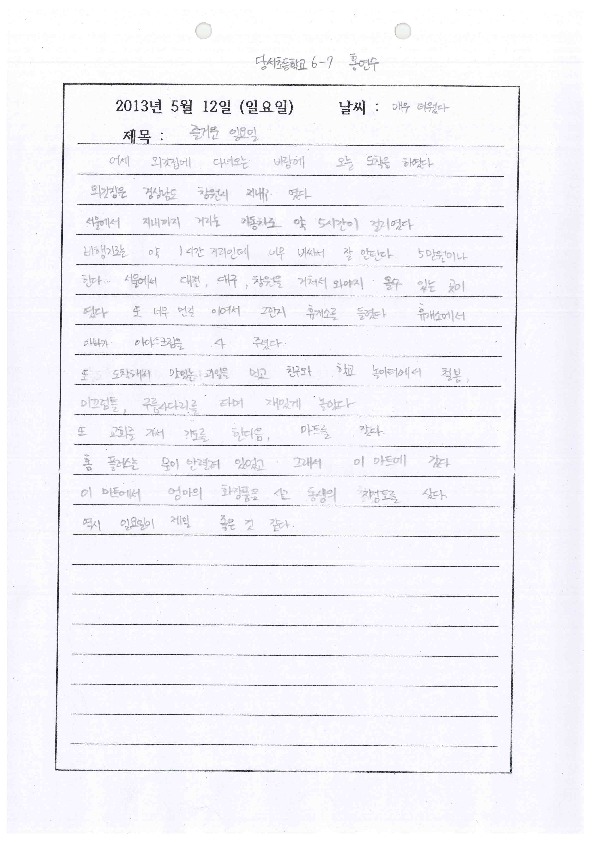 당서초등학교 6-7 홍연수
2013년 5월 12일 (일요일) 날씨 : 매우 더웠다
제목 : 즐거운 일요일
어제 외갓집에 다녀오는 바람에 오늘 도착을 하였다
외갓집은 경상남도 창원시 였다
서울에서 까지 거리는 자동차로 약 5시간이 걸리었다
비행기로는 약 1시간 거리인데 너무 비싸서 잘 안탄다 5만원이나
한다.. 서울에서 대전, 대구, 창원을 거쳐서 와야지 볼수 있는 곳이
였다 또 너무 먼길 이여서 휴개소를 들렸다 휴개소에서
아빠가 아이스크림을 사 주셨다.
또 도착해서 맛있는 과일을 먹고 친구와 학교 놀이터에서 철봉,
미끄럼틀, 구름사다리를 타며 재밌게 놀았다
또 교회를 가서 기도를 한다음, 마트를 갔다
홈 플러스는 문이 안열려 있었고 그래서 이 마트에 갔다
이 마트에서 엄마의 화장품을 사고 동생의 를 샀다
역시 일요일이 제일 좋은 것 같다.